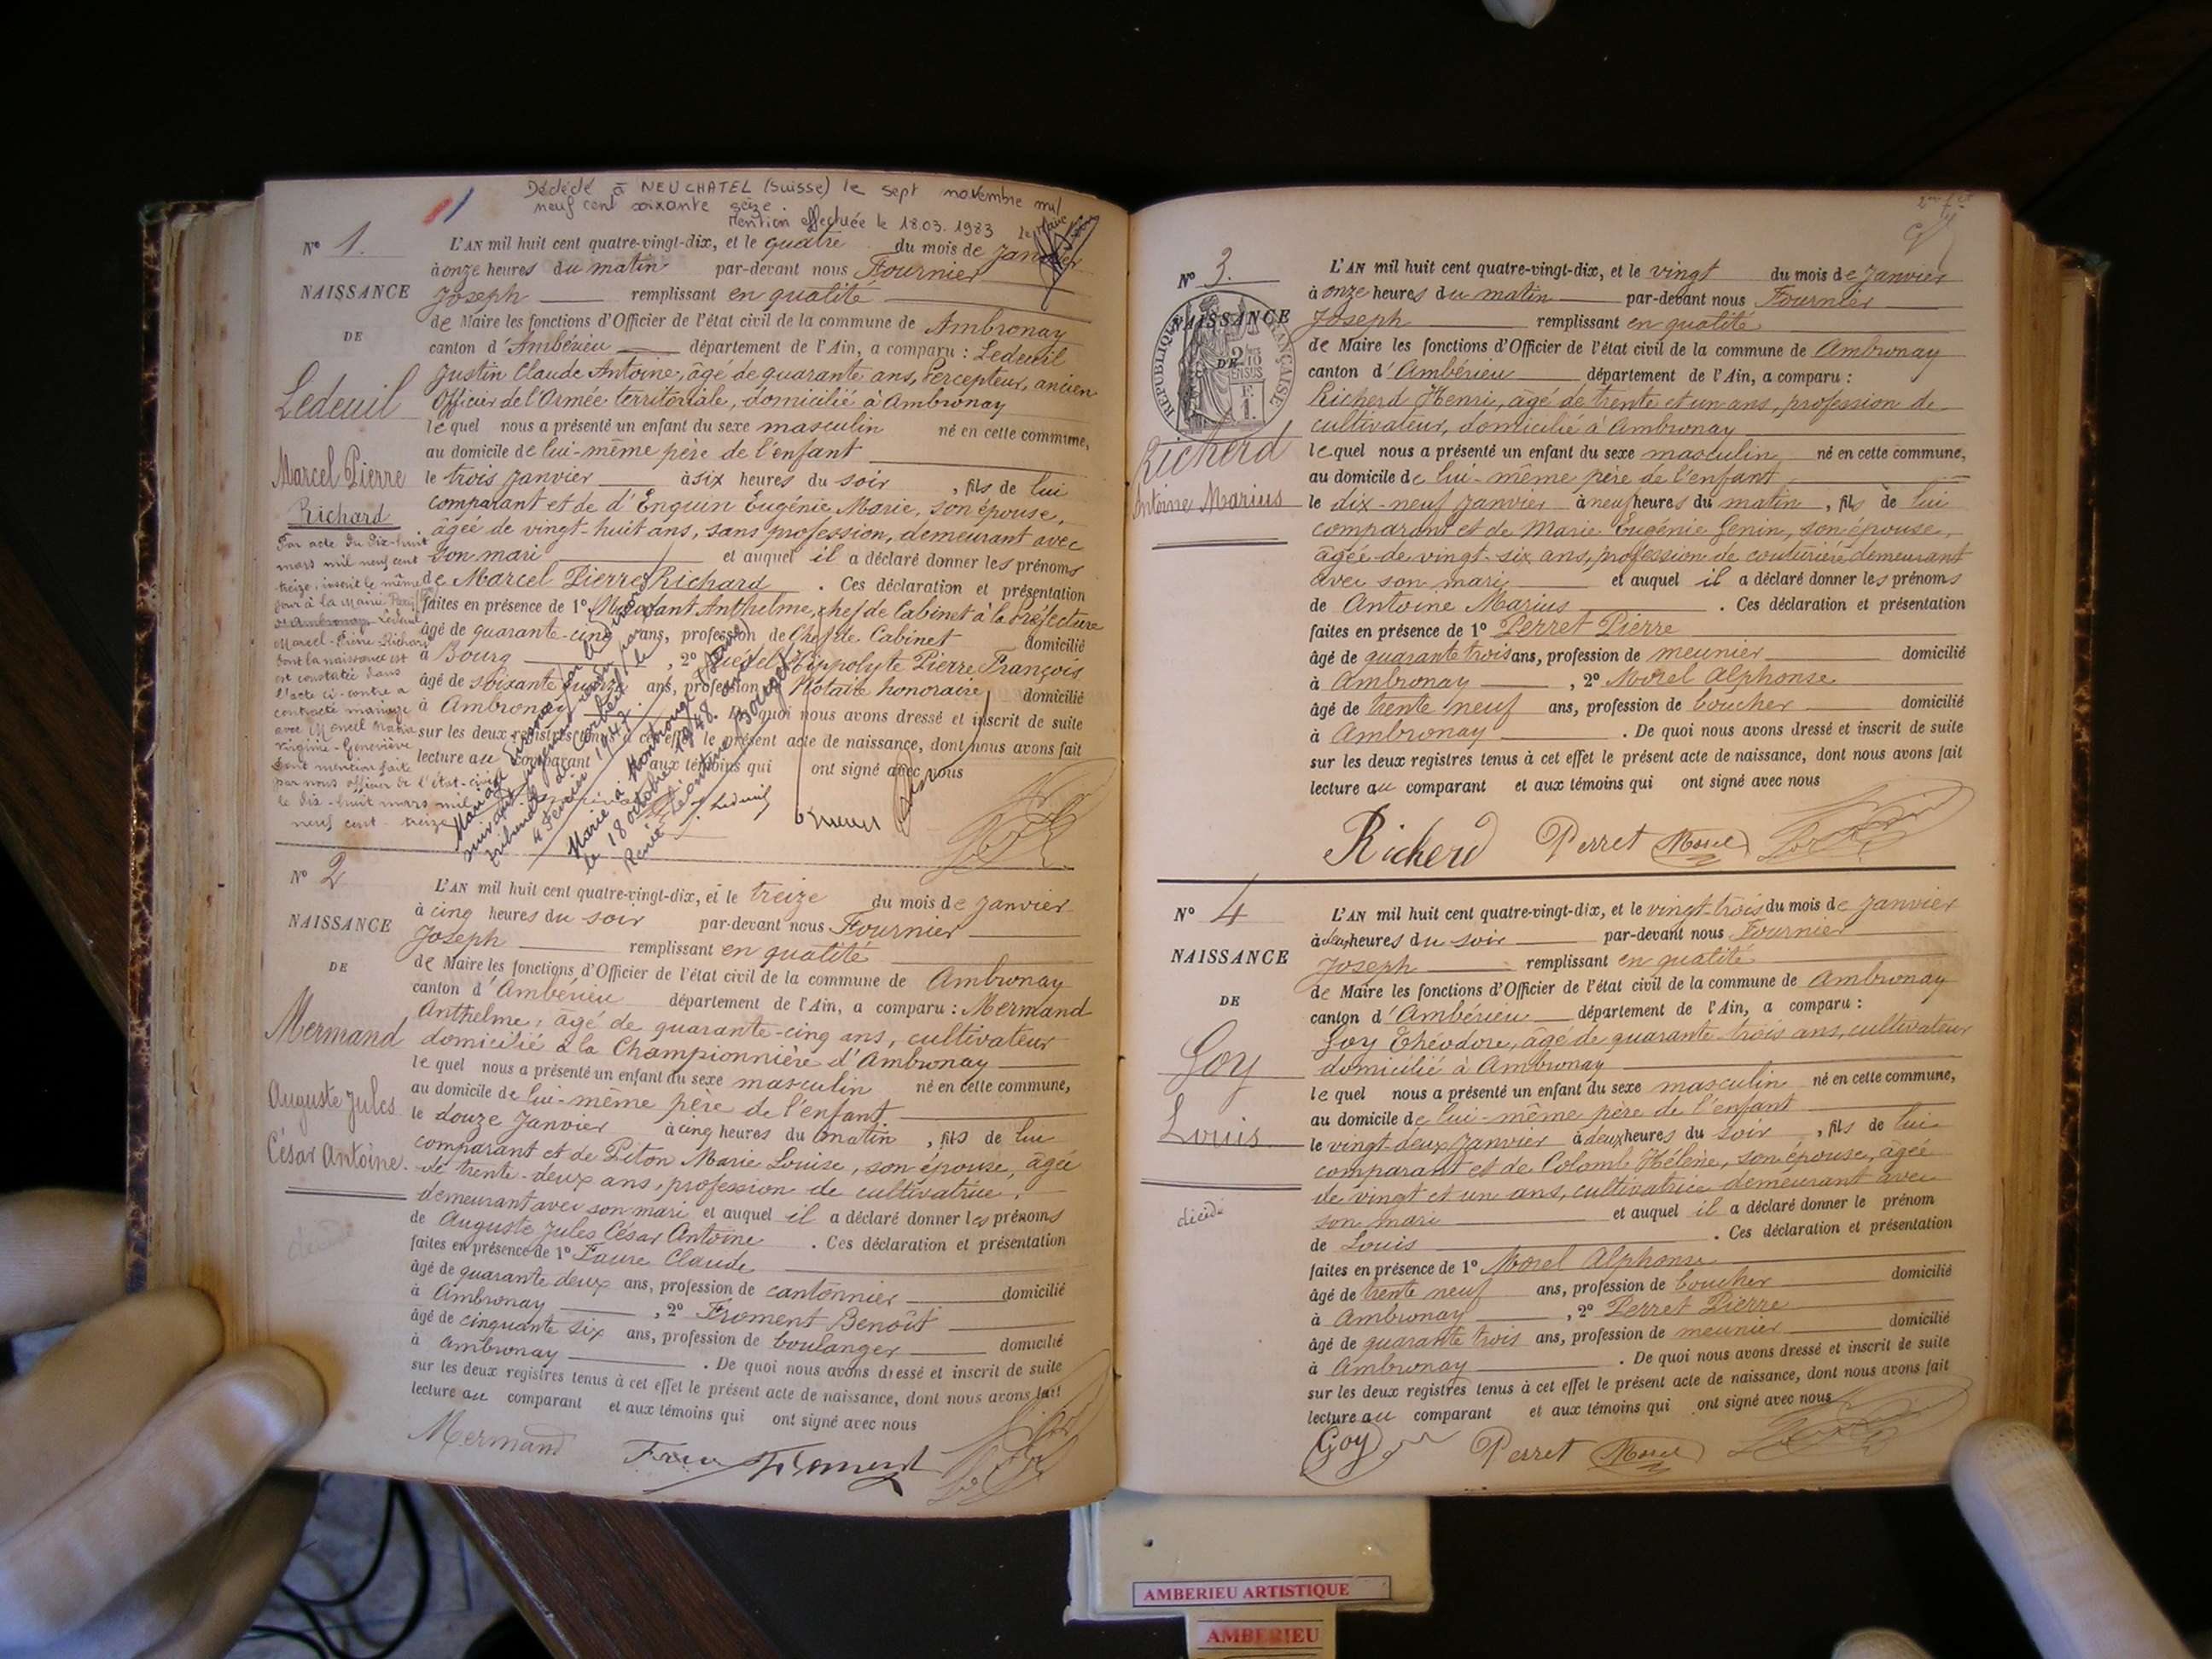 Décédé à NEUCHATEL (Suisse) le sept novembre mil
neuf cent soixante seize.
Mention effectuée le 18.03.1983 le Maire
N° 1.
NAISSANCE
DE
Ledeuil
Marcel Pierre
Richard
Par acte du dix-huit
mars mil neuf cent
treize, inscrit le même
jour à la Mairie
d'Ambronay Ledeuil
Marcel-Pierre-Richard
dont la naissance est
est constatée dans
l'acte ci-contre a
contracté mariage
avec Maria
Virginie-Geneviève
Dont mention faite
par nous officier de l'état-civil
le dix-huit mars mil
neuf cent-treize
L'AN mil huit cent quatre-vingt-dix, et le quatre du mois de Janvier
à onze heures du matin par-devant nous Fournier
Joseph remplissant en qualité
de Maire les fonctions d'Officier de l'état civil de la commune de Ambronay
canton d'Ambérieu département de l'Ain, a comparu : Ledeuil
Justin Claude Antoine, âgé de quarante ans, Percepteur, ancien
Officier de l'Armée territoriale, domicilié à Ambronay
lequel nous a présenté un enfant du sexe masculin né en cette commune,
au domicile de lui-même père de l'enfant
le trois Janvier à six heures du soir, fils de lui
comparant et de d'Enquin Eugénie Marie, son épouse,
âgée de vingt-huit ans, sans profession, demeurant avec
son mari et auquel il a déclaré donner les prénoms
de Marcel Pierre Richard. Ces déclaration et présentation
faites en présence de 1° Anthelme, chef de Cabinet à la Préfecture
âgé de quarante-cinq ans, profession de Chef de Cabinet domicilié
à Bourg, 2° Hippolyte Pierre François
âgé de soixante quinze ans, profession Notaire honoraire domicilié
à Ambronay De quoi nous avons dressé et inscrit de suite
sur les deux registres tenus à cet effet le présent acte de naissance, dont nous avons fait
lecture au comparant aux témoins qui ont signé avec nous
Mariage
suivant jugement rendu par le
tribunal de Corbeil le
4 Février 1947.
Marié à Montrouge (Seine)
le 18 octobre 1948 avec
Renée Léontine Bourgeois
J. Ledeuil
N° 2
NAISSANCE
DE
Mermand
Auguste Jules
César Antoine.
décédé
L'AN mil huit cent quatre-vingt-dix, et le treize du mois de Janvier
à cinq heures du soir par-devant nous Fournier
Joseph remplissant en qualité
de Maire les fonctions d'Officier de l'état civil de la commune de Ambronay
canton d'Ambérieu département de l'Ain, a comparu : Mermand
Anthelme, âgé de quarante-cinq ans, cultivateur
domicilié à la Championnière d'Ambronay
lequel nous a présenté un enfant du sexe masculin né en cette commune,
au domicile de lui-même père de l'enfant
le douze Janvier à cinq heures du matin, fils de lui
comparant et de Piton Marie Louise, son épouse, âgée
de trente-deux ans, profession de cultivatrice,
demeurant avec son mari et auquel il a déclaré donner les prénoms
de Auguste Jules César Antoine. Ces déclaration et présentation
faites en présence de 1° Faure Claude
âgé de quarante deux ans, profession de cantonnier domicilié
à Ambronay, 2° Froment Benoît
âgé de cinquante six ans, profession de boulanger domicilié
à Ambronay. De quoi nous avons dressé et inscrit de suite
sur les deux registres tenus à cet effet le présent acte de naissance, dont nous avons fait
lecture au comparant et aux témoins qui ont signé avec nous
Mermand Faure Froment
N° 3.
NAISSANCE
DE
RÉPUBLIQUE FRANÇAISE
Richerd
Antoine Marius
L'AN mil huit cent quatre-vingt-dix, et le vingt du mois de Janvier
à onze heures du matin par-devant nous Fournier
Joseph remplissant en qualité
de Maire les fonctions d'Officier de l'état civil de la commune de Ambronay
canton d'Ambérieu département de l'Ain, a comparu :
Richerd Henri, âgé de trente et un ans, profession de
cultivateur, domicilié à Ambronay
lequel nous a présenté un enfant du sexe masculin né en cette commune,
au domicile de lui-même père de l'enfant
le dix-neuf Janvier à neuf heures du matin, fils de lui
comparant et de Marie Eugénie Genin, son épouse,
âgée de vingt-six ans, profession de couturière demeurant
avec son mari et auquel il a déclaré donner les prénoms
de Antoine Marius. Ces déclaration et présentation
faites en présence de 1° Perret Pierre
âgé de quarante trois ans, profession de meunier domicilié
à Ambronay, 2° Morel Alphonse
âgé de trente neuf ans, profession de boucher domicilié
à Ambronay. De quoi nous avons dressé et inscrit de suite
sur les deux registres tenus à cet effet le présent acte de naissance, dont nous avons fait
lecture au comparant et aux témoins qui ont signé avec nous
Richerd Perret Morel
N° 4
NAISSANCE
DE
Goy
Louis
décédé
L'AN mil huit cent quatre-vingt-dix, et le vingt-trois du mois de Janvier
à deux heures du soir par-devant nous Fournier
Joseph remplissant en qualité
de Maire les fonctions d'Officier de l'état civil de la commune de Ambronay
canton d'Ambérieu département de l'Ain, a comparu :
Goy Théodore, âgé de quarante-trois ans, cultivateur
domicilié à Ambronay
lequel nous a présenté un enfant du sexe masculin né en cette commune,
au domicile de lui-même père de l'enfant
le vingt-deux Janvier à deux heures du soir, fils de lui
comparant et de Colomb Hélène, son épouse, âgée
de vingt et un ans, cultivatrice demeurant avec
son mari et auquel il a déclaré donner le prénom
de Louis. Ces déclaration et présentation
faites en présence de 1° Morel Alphonse
âgé de trente neuf ans, profession de boucher domicilié
à Ambronay, 2° Perret Pierre
âgé de quarante trois ans, profession de meunier domicilié
à Ambronay. De quoi nous avons dressé et inscrit de suite
sur les deux registres tenus à cet effet le présent acte de naissance, dont nous avons fait
lecture au comparant et aux témoins qui ont signé avec nous
Goy Perret Morel
AMBERIEU ARTISTIQUE
AMBERIEU